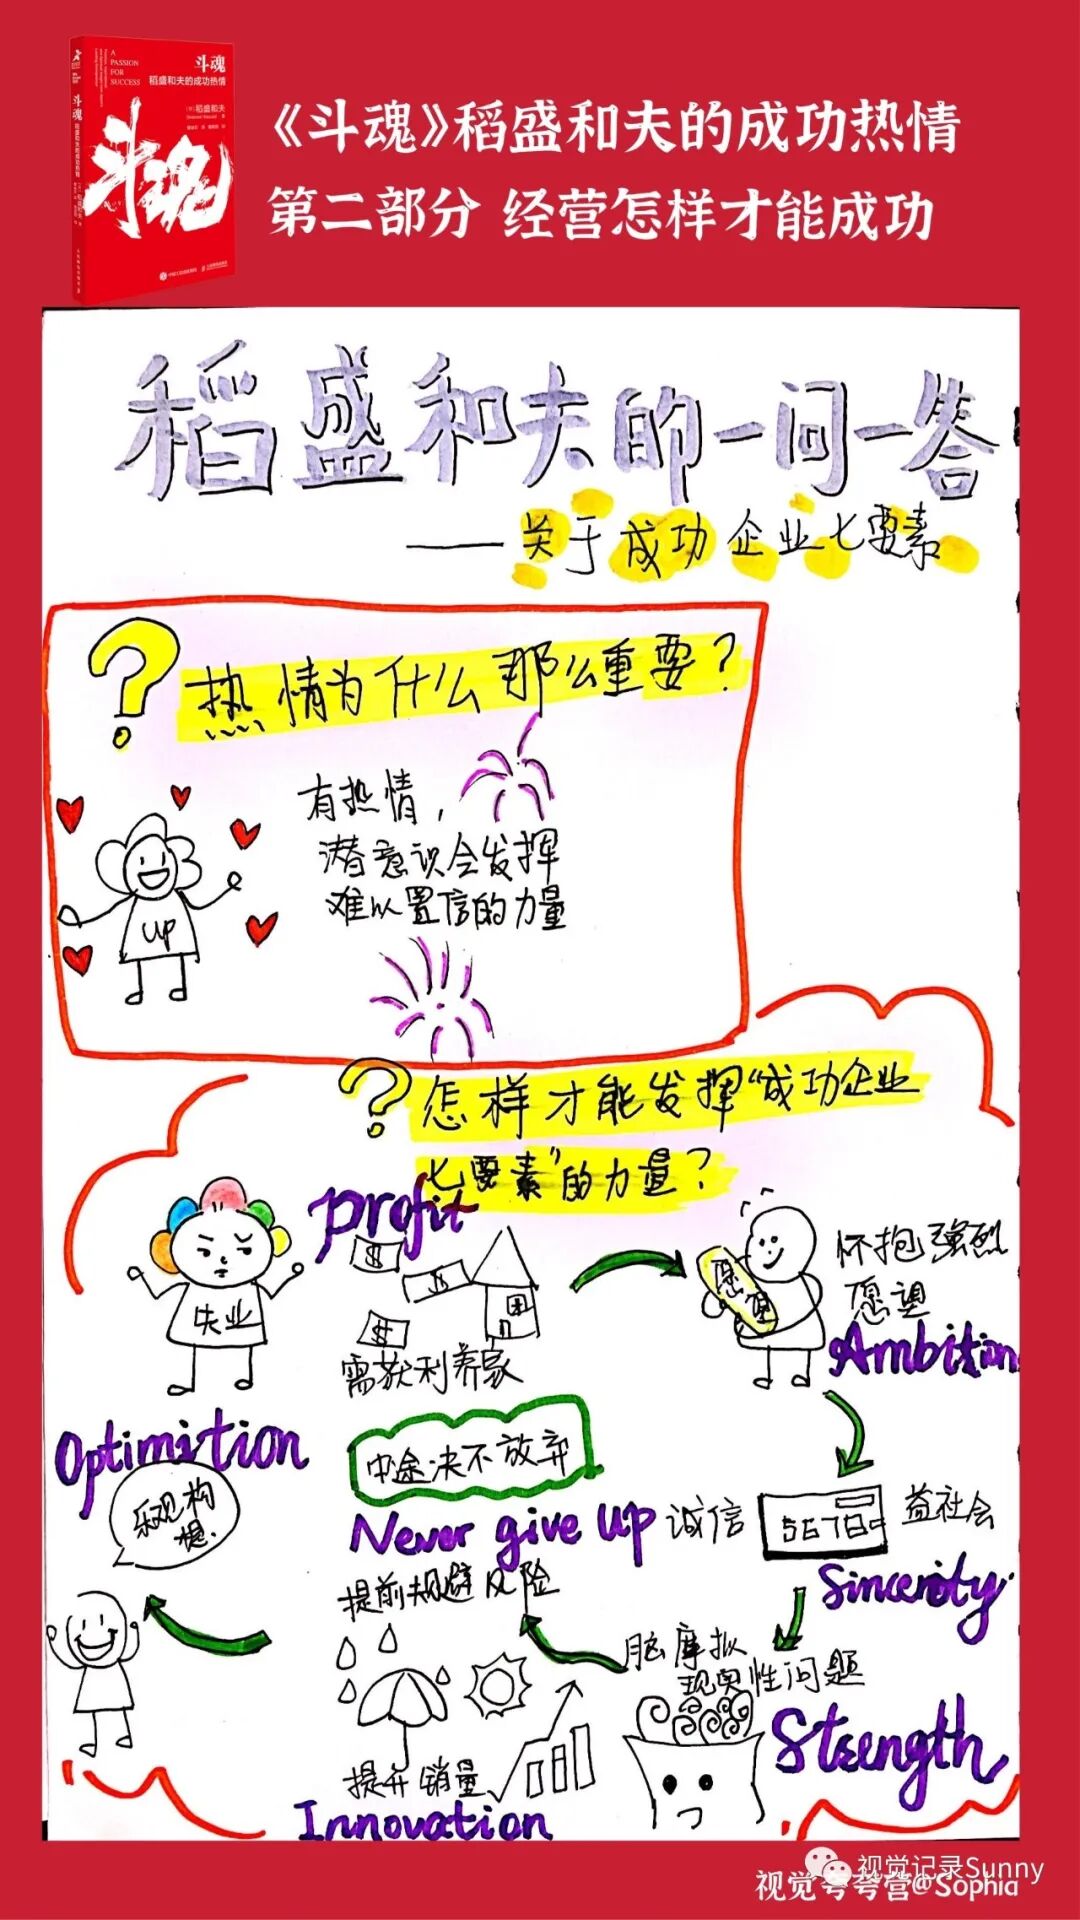 A
PASSION
FOR
SUCCESS
斗魂
稻盛和夫的成功热情
斗魂
稻盛和夫的成功热情
斗魂
《斗魂》稻盛和夫的成功热情
第二部分 经营怎样才能成功
稻盛和夫的一问一答
——关于成功企业七要素
?热情为什么那么重要?
有热情,
潜意识会发挥
难以置信的力量
UP
?怎样才能发挥“成功企业
七要素”的力量?
Profit
失业
$
$
$
需获利养家
愿望
怀抱强烈
愿望
Ambition
Optimition
乐观构想.
中途决不放弃
Never give up
诚信
5678
益社会
Sincerity
提前规避风险
脑摩拟
现实性问题
Strength
提升销量
Innovation
视觉记录Sunny
视觉夸夸营@Sophia